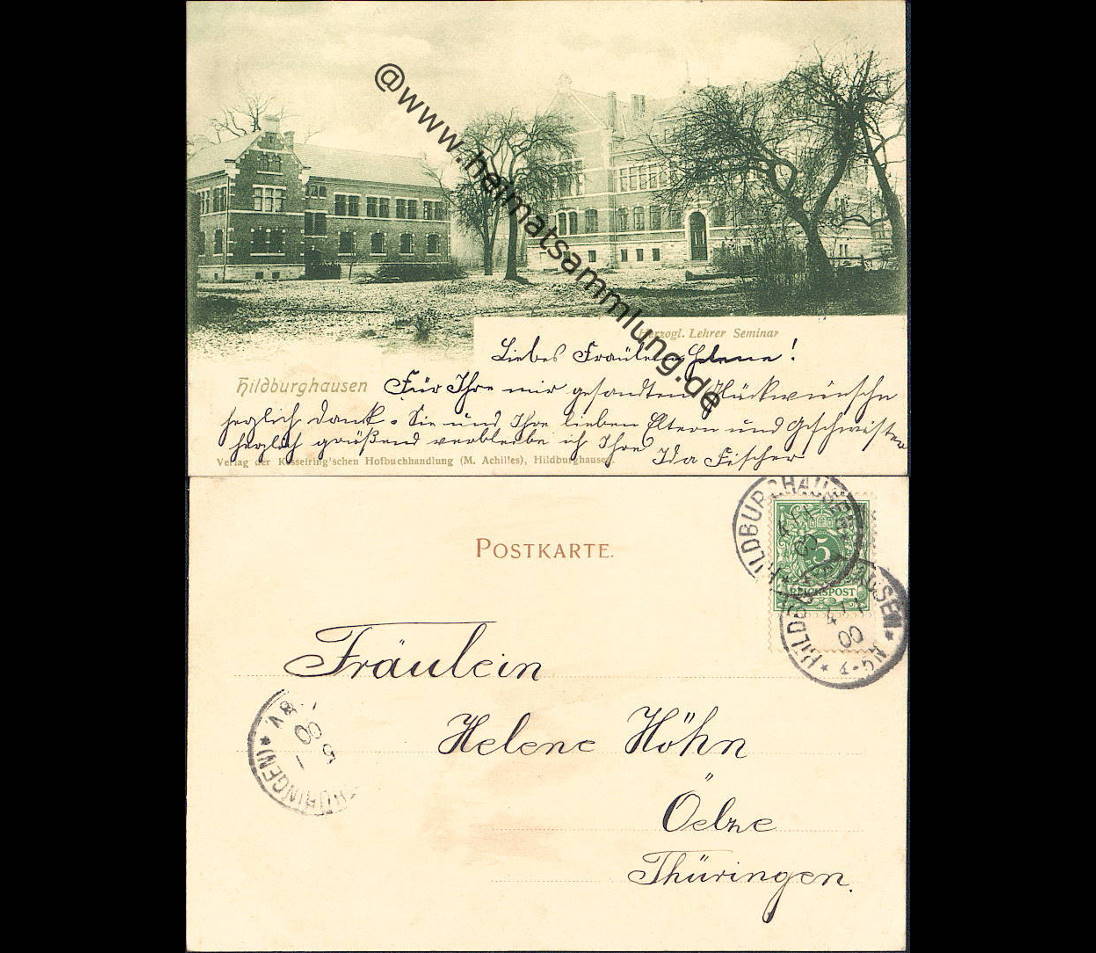 @www.heimatsammlung.de
Herzogl. Lehrer Seminar
Liebes Fräulein Helene!
Hildburghausen
Für Ihre mir gesandten Glückwünsche
herzlich Dank. Sie und Ihre lieben Eltern und Geschwister
herzlich grüßend verbleibe ich Ihre
Ida Fischer
Verlag der Kesselring'schen Hofbuchhandlung (M. Achilles), Hildburghausen.
HILDBURGHAUSEN
POSTKARTE.
5
REICHSPOST
HILDBURGHAUSEN
00
Fräulein
Helene Höhn
Oelze
Thüringen.
(THÜRINGEN)